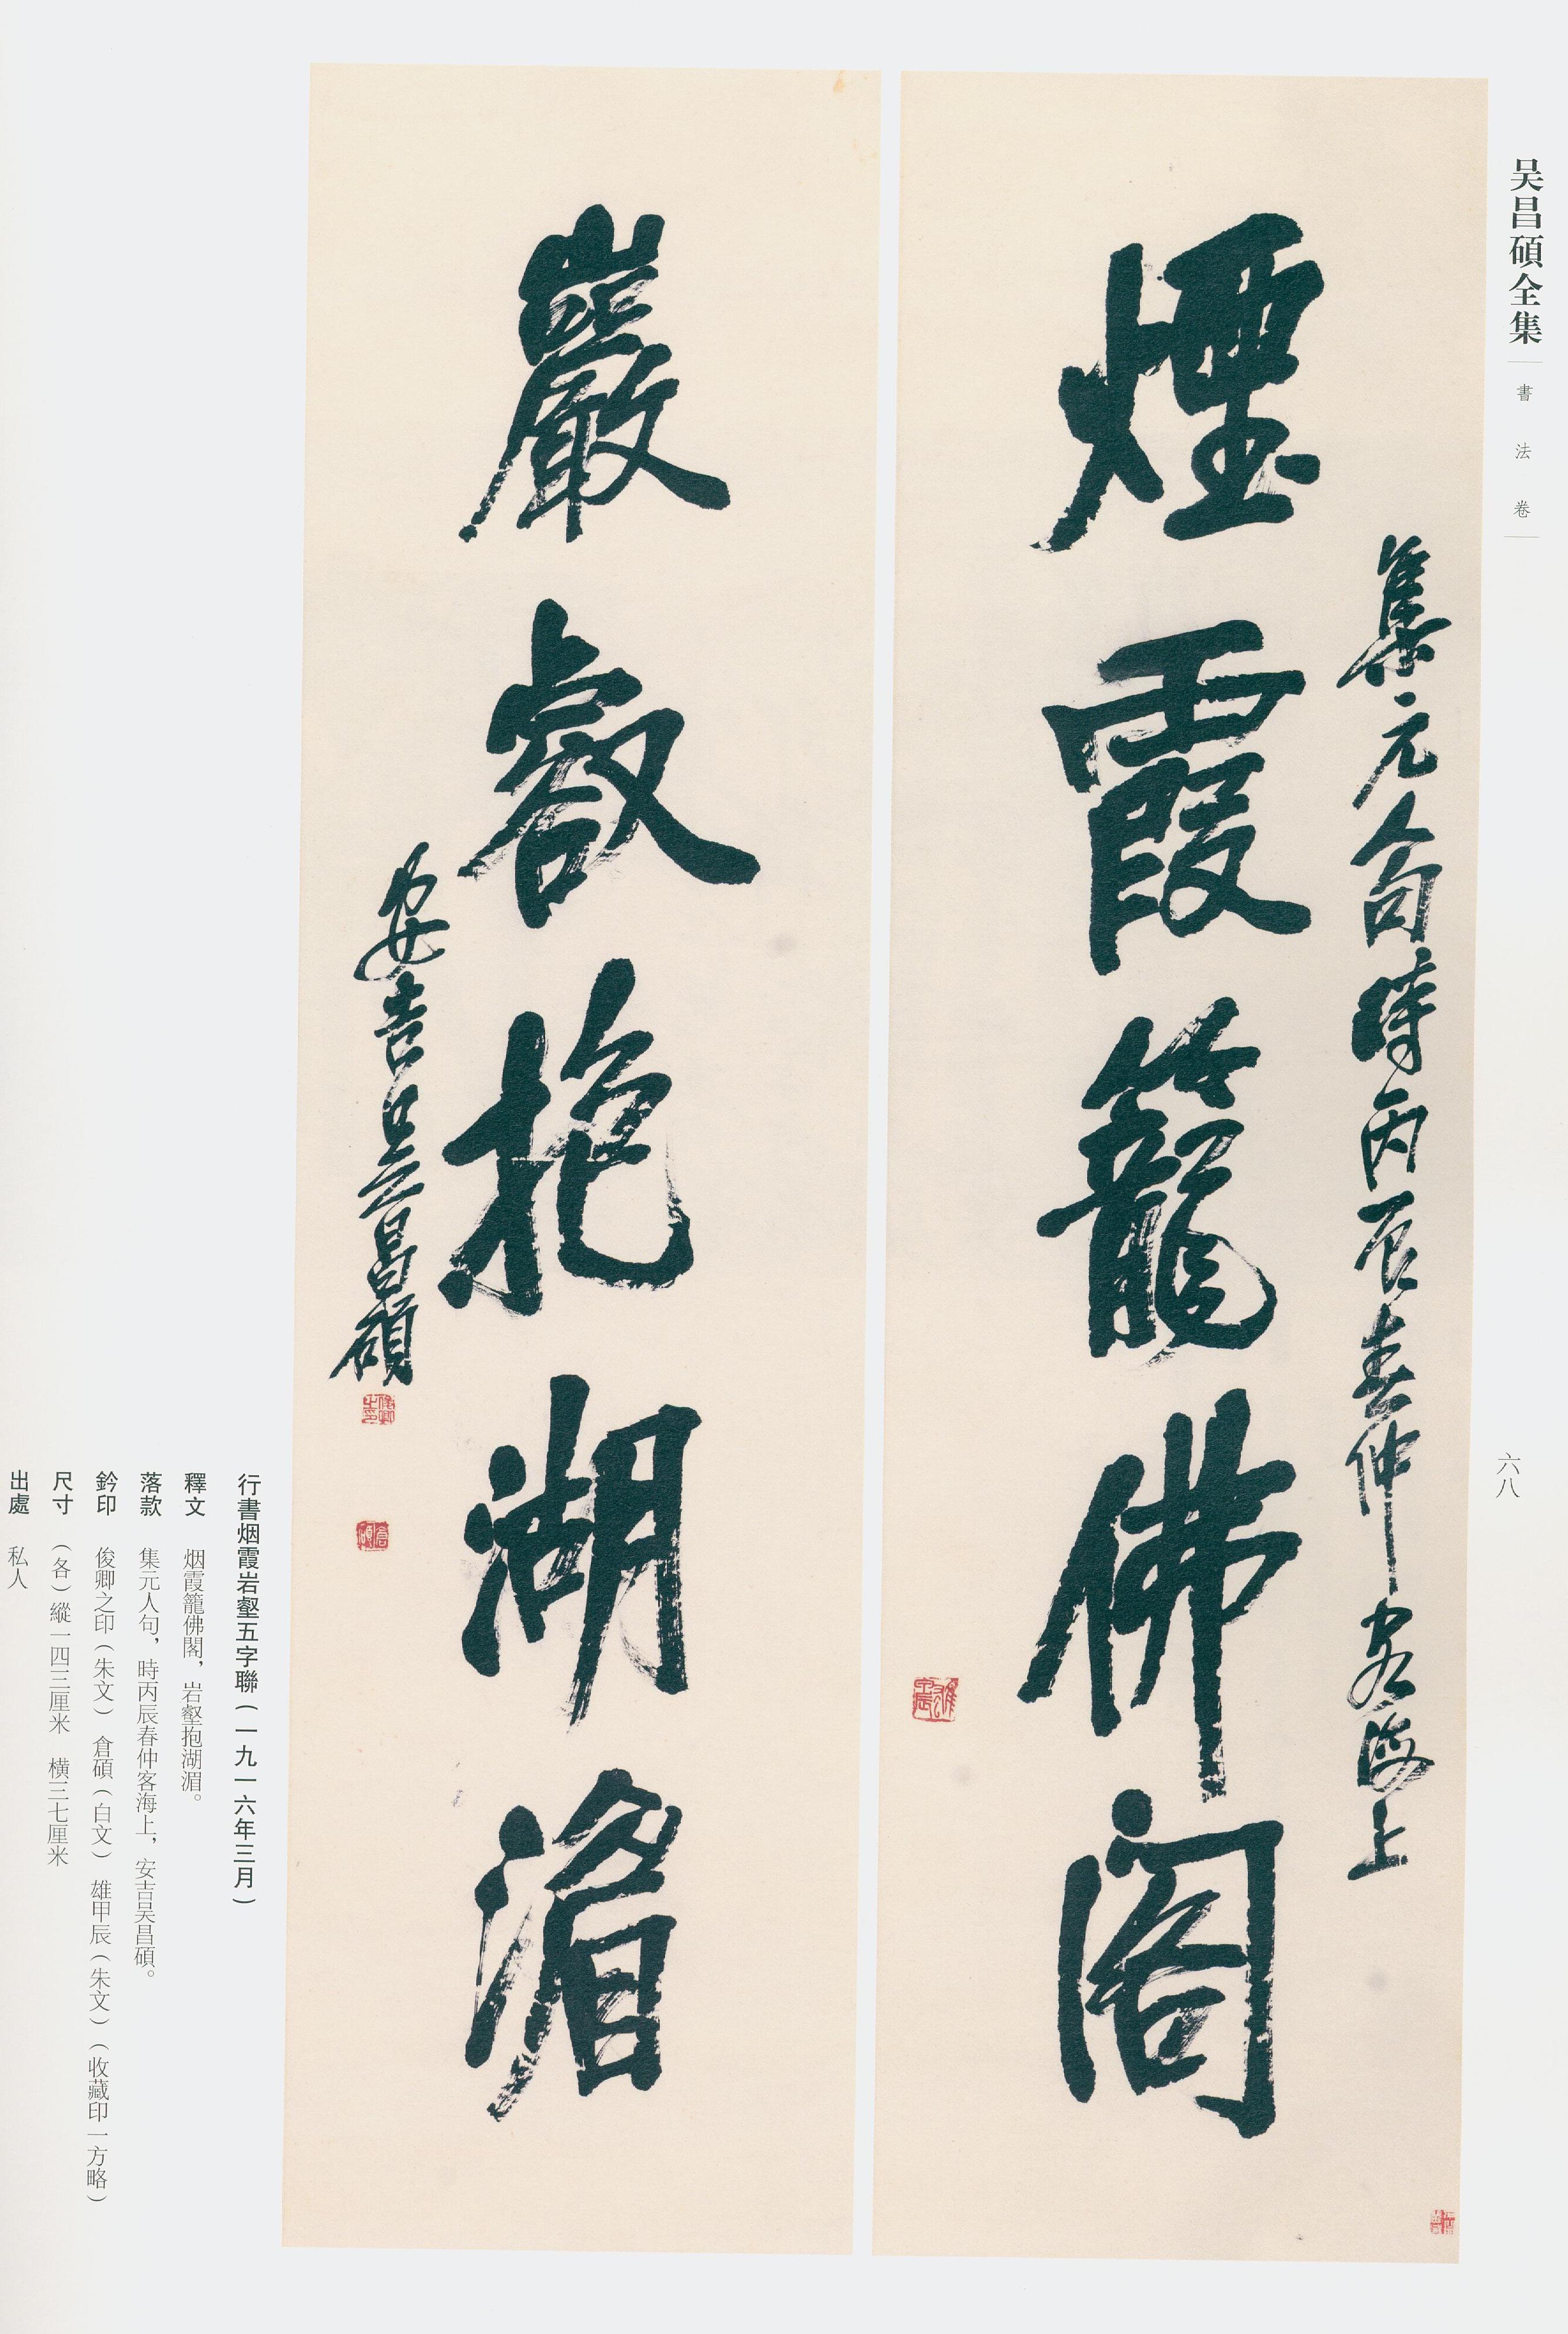 吴昌碩全集
書法卷
六八
集元人句時丙辰春仲客海上
煙霞籠佛閣
巖壑抱湖湄
安吉吴昌碩
行書烟霞岩壑五字聯(一九一六年三月)
釋文 烟霞籠佛閣，岩壑抱湖湄。
落款 集元人句，時丙辰春仲客海上，安吉吴昌碩。
鈐印 俊卿之印(朱文) 倉碩(白文) 雄甲辰(朱文)(收藏印一方略)
尺寸 (各)縱一四三厘米 横三七厘米
出處 私人
俊卿之印
倉碩
雄甲辰